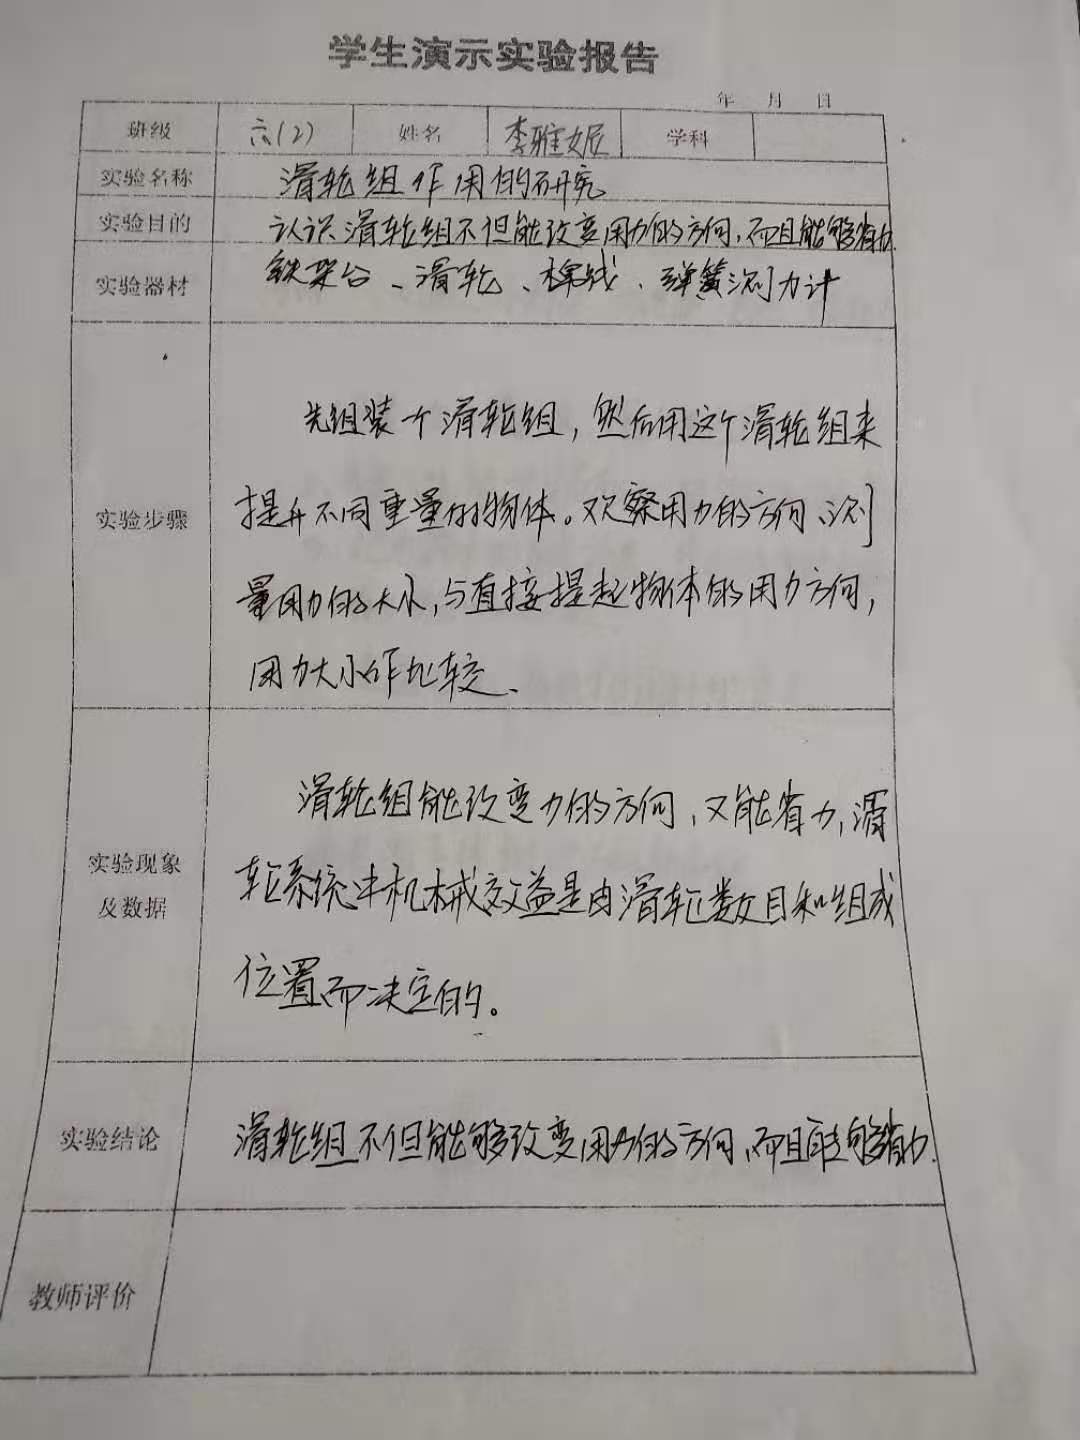 学生演示实验报告
年 月 日
班级 六(2) 姓名 李雅妮 学科
实验名称 滑轮组作用的研究
实验目的 认识滑轮组不但能改变用力的方向,而且能够省力.
实验器材 铁架台、滑轮、棉线、弹簧测力计
先组装一个滑轮组,然后用这个滑轮组来
实验步骤 提升不同重量的物体。观察用力的方向、测
量用力的大小,与直接提起物体的用力方向,
用力大小作比较、
滑轮组能改变力的方向,又能省力,滑
实验现象 轮系统中机械效益是由滑轮数目和组成
及数据
位置而决定的。
实验结论 滑轮组不但能够改变用力的方向,而且能够省力.
教师评价